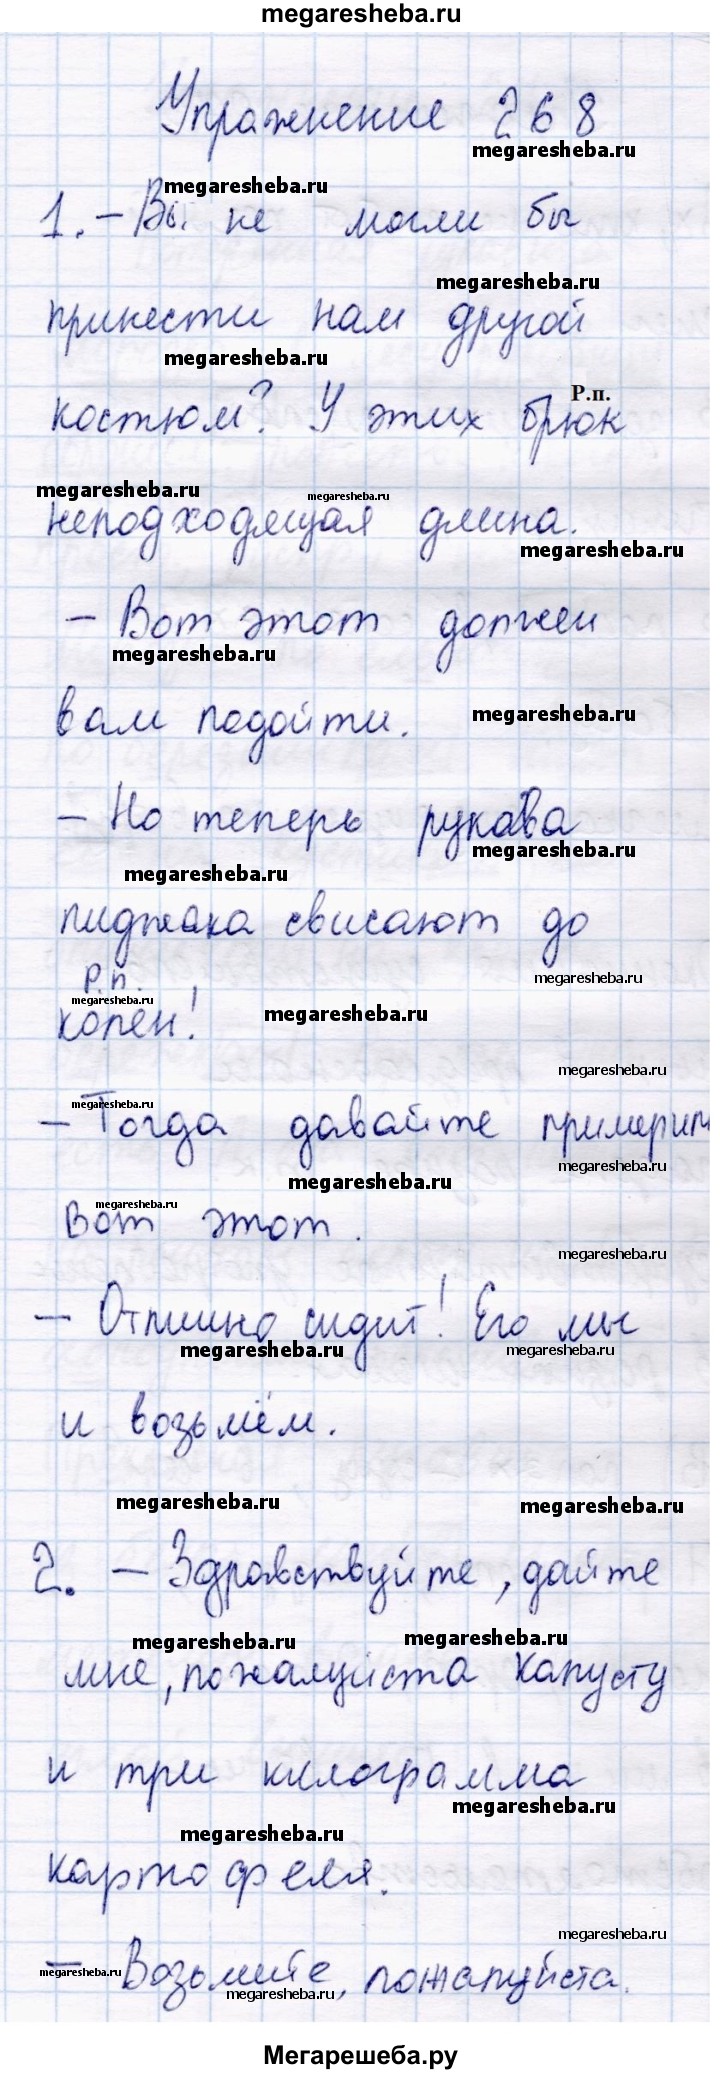 megaresheba.ru
Упражнение 268
megaresheba.ru
megaresheba.ru
1. – Вы не могли бы
megaresheba.ru
принести нам другой
megaresheba.ru
Р.п.
костюм? У этих брюк
megaresheba.ru megaresheba.ru
неподходящая длина.
megaresheba.ru
– Вот этот должен
megaresheba.ru
вам подойти.
megaresheba.ru
– Но теперь рукава
megaresheba.ru
megaresheba.ru
пиджака свисают до
Р.п.
megaresheba.ru
megaresheba.ru
колен!
megaresheba.ru
megaresheba.ru
megaresheba.ru
– Тогда давайте примерим
megaresheba.ru
megaresheba.ru
megaresheba.ru
вот этот.
megaresheba.ru
– Отлично сидит! Его мы
megaresheba.ru megaresheba.ru
и возьмём.
megaresheba.ru megaresheba.ru
2. – Здравствуйте, дайте
megaresheba.ru megaresheba.ru
мне, пожалуйста капусту
и три килограмма
megaresheba.ru
megaresheba.ru
картофеля.
megaresheba.ru
– Возьмите, пожалуйста.
megaresheba.ru
megaresheba.ru megaresheba.ru
Мегарешеба.ру